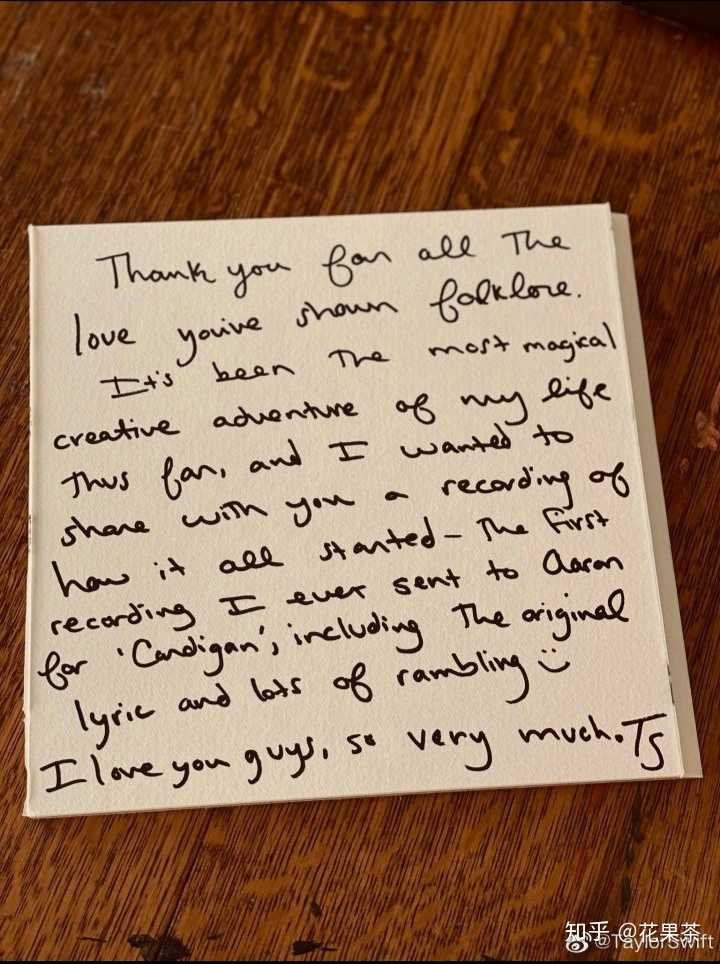 Thank you for all The
love you've shown folklore.
It's been The most magical
creative adventure of my life
Thus far, and I wanted to
share with you a recording of
how it all started - The First
recording I ever sent to Aaron
for 'Cardigan', including The original
lyric and lots of rambling :)
I love you guys, so very much. TS
知乎 @花果茶
@TaylorSwift